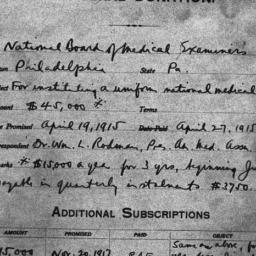 DONATION.
National Board of Medical Examiners
Philadelphia State Pa.
For instituting a uniform national medical
$45,000 * Terms
Promised April 19, 1915 Date Paid April 27, 1915
Dr. Wm. L. Rodman, Pres. Am. Med. Assn
* $15,000 a year for 3 yrs, beginning
payable in quarterly instalments $3750.
ADDITIONAL SUBSCRIPTIONS
AMOUNT PROMISED PAID OBJECT
Same as above, for
Nov. 20, 1917